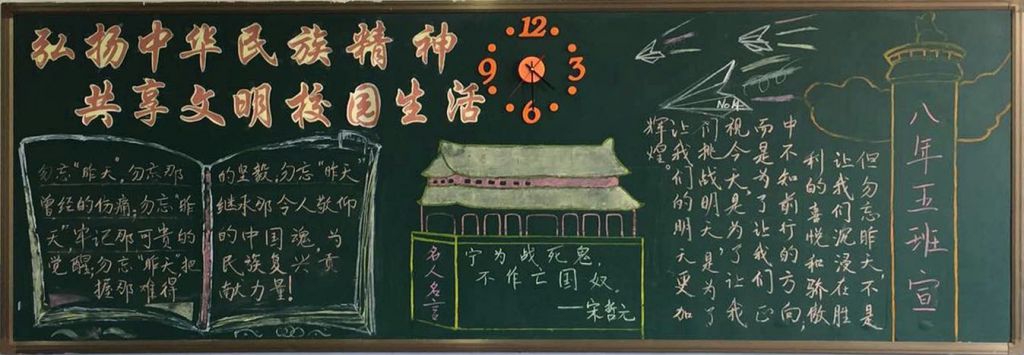 弘扬中华民族精神
共享文明校园生活
12
9
3
6
勿忘“昨天”,勿忘那
曾经的伤痛,勿忘“昨
天”牢记那可贵的
觉醒,勿忘“昨天”把
握那难得
的坚毅,勿忘“昨天”
继承那令人敬仰
的中国魂,为
民族复兴贡
献力量!
名人名言
宁为战死鬼,
不作亡国奴。
——宋哲元
No 4
但勿忘昨天,不是
让我们泥浸在胜
利的喜悦和骄傲
中不知前行的方向,
而是为了让我们正
视今天,是为了让我
们挑战明天,是为了
让我们的明天更加
辉煌。
八年五班宣